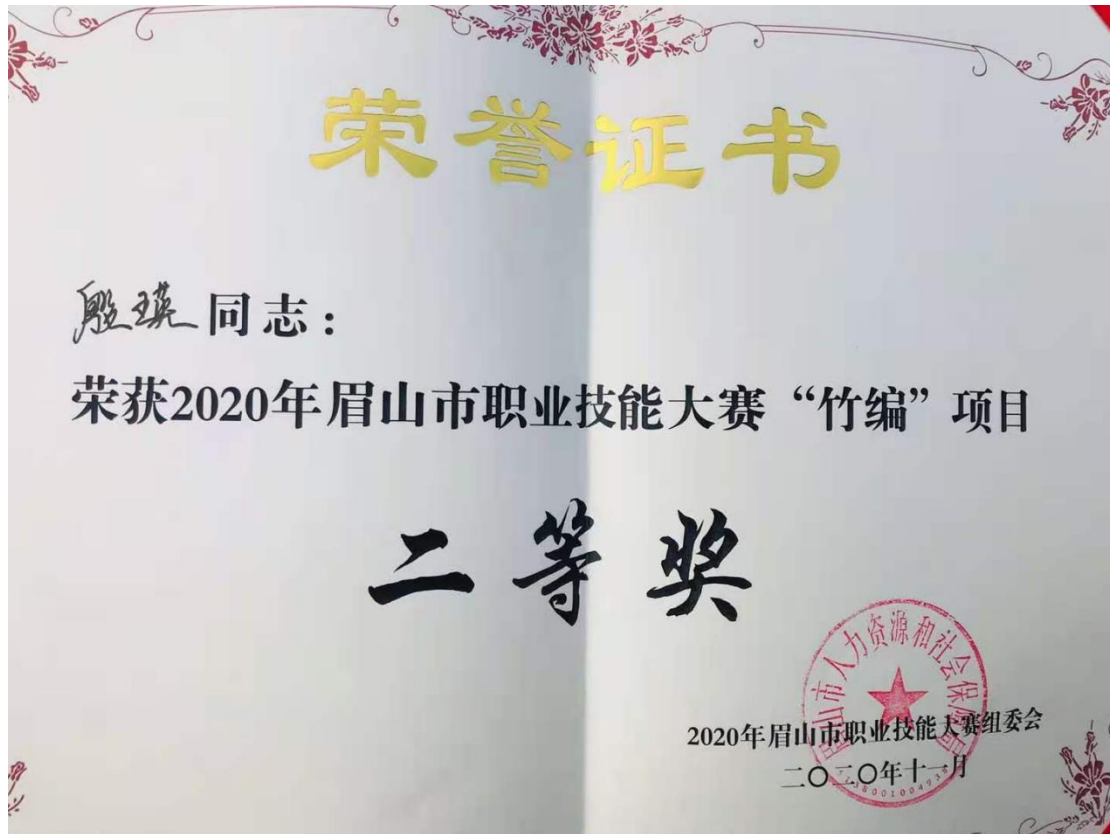 荣誉证书
殷瑛同志：
荣获2020年眉山市职业技能大赛“竹编”项目
二等奖
眉山市人力资源和社会保障局
2020年眉山市职业技能大赛组委会
二〇二〇年十一月